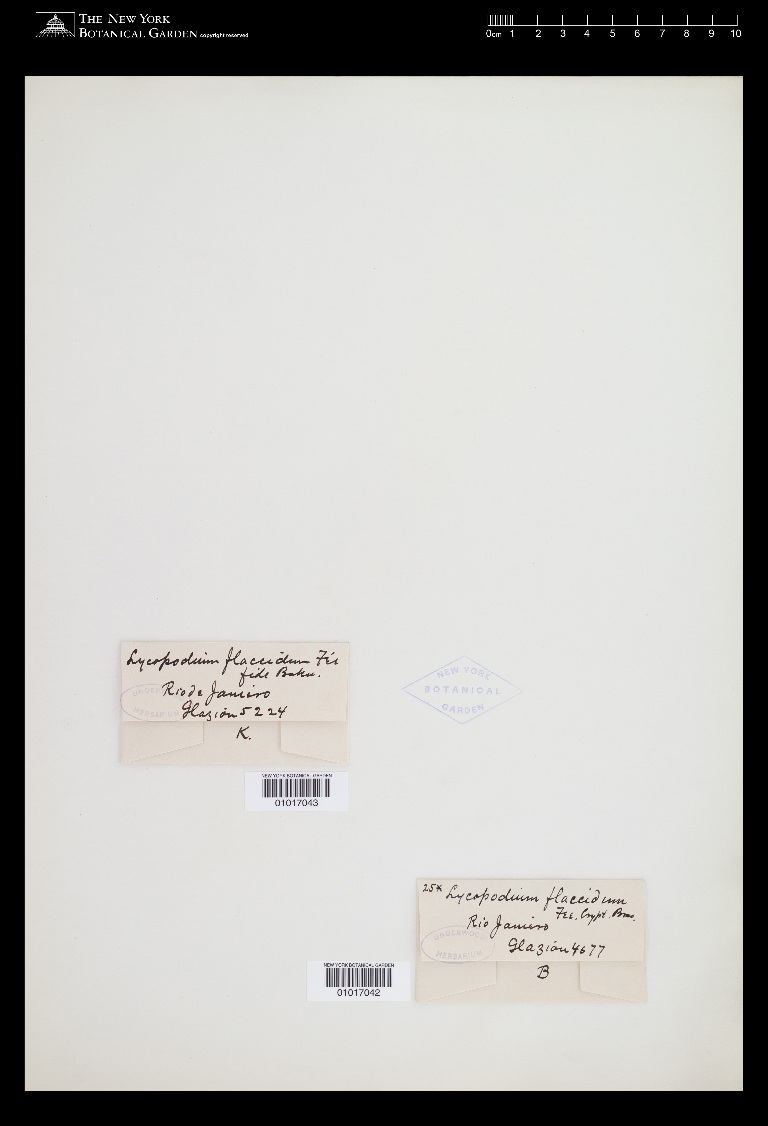 THE NEW YORK
BOTANICAL GARDEN copyright reserved
0cm 1 2 3 4 5 6 7 8 9 10
Lycopodium flaccidum Fée
fide Baker.
Rio de Janeiro
Glaziou 5224
K.
UNDERWOOD
HERBARIUM
NEW YORK BOTANICAL GARDEN
01017043
NEW YORK
BOTANICAL
GARDEN
25* Lycopodium flaccidum
Fée, Crypt. Bras.
Rio Janeiro
Glaziou 4677
B
UNDERWOOD
HERBARIUM
NEW YORK BOTANICAL GARDEN
01017042